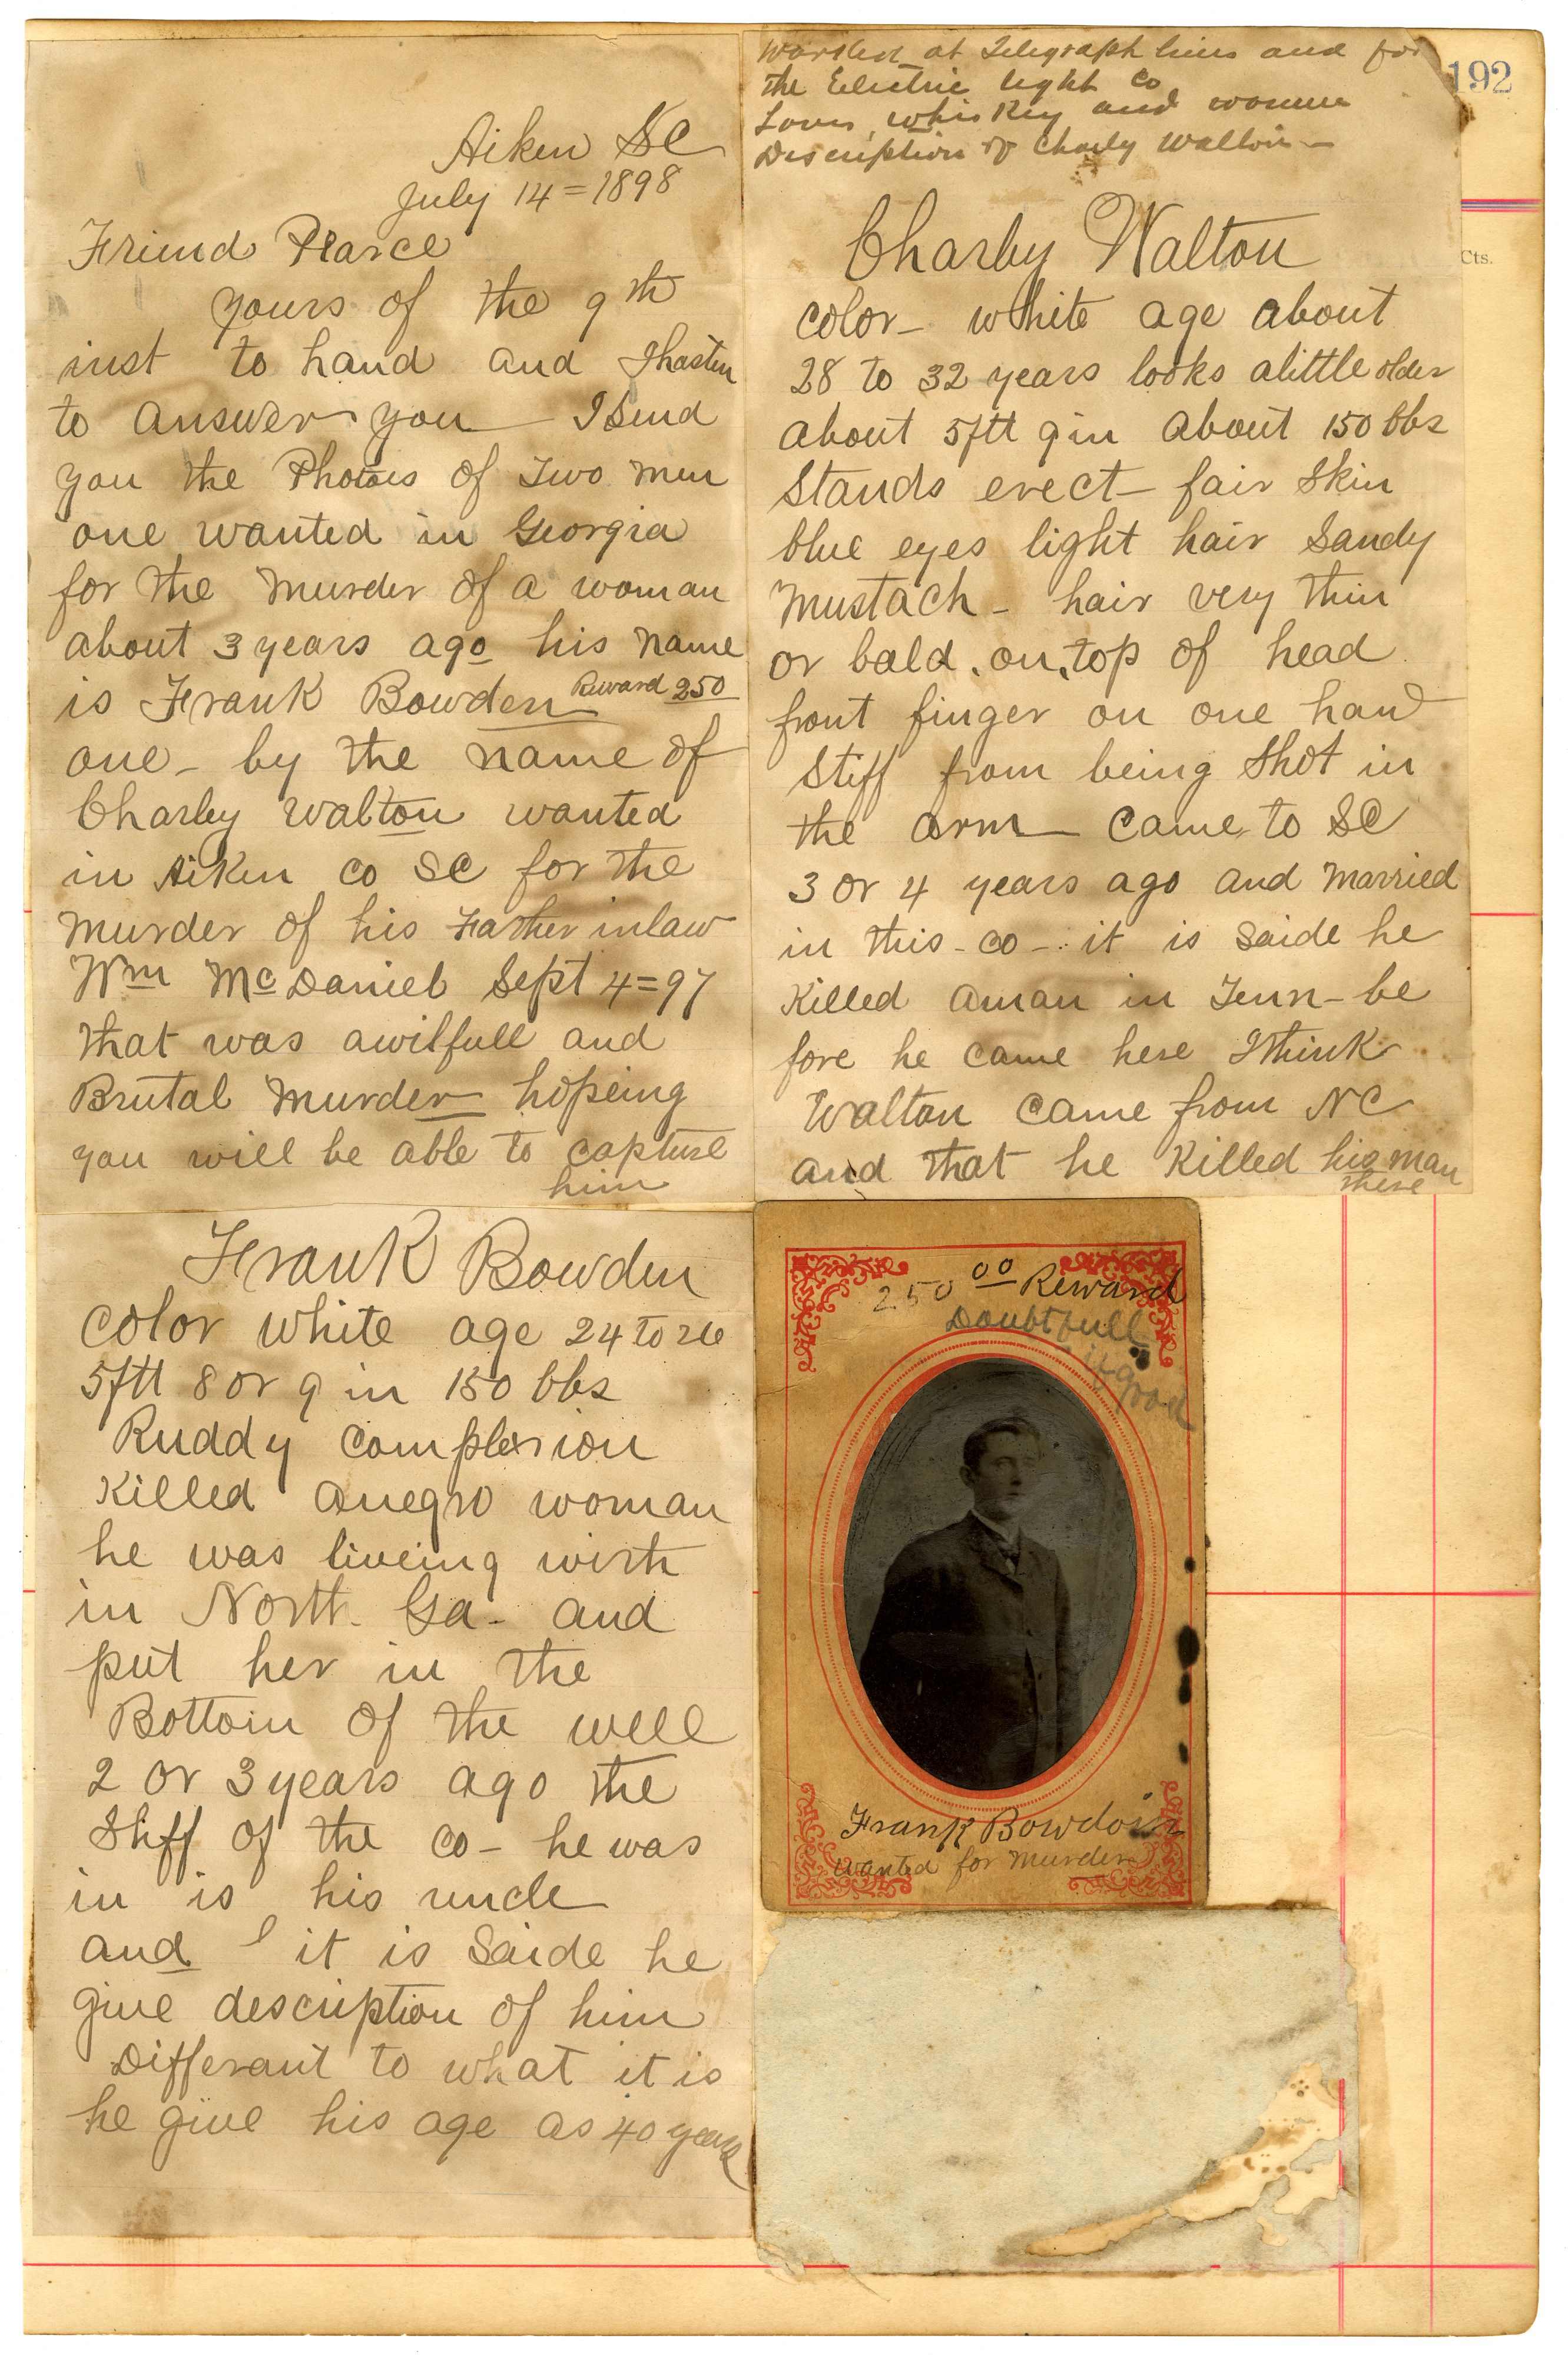 Aiken SC
July 14=1898
Friend Pearce
yours of the 9th
inst to hand and I hasten
to answer you I Send
you the Photoes of Two men
one wanted in Georgia
for the murder of a woman
about 3 years ago his name
is Frank Bowden Reward 250
one - by the name of
Charley Walton wanted
in Aiken co SC for the
murder of his Father inlaw
Wm McDaniel Sept 4=97
that was awilfull and
Brutal murder hopeing
you will be able to capture
him
worked at Telegraph lines and for
the Electric light Co
Loves whiskey and women
Discription of Charly Walton -
192
Cts.
Charley Walton
color - white age about
28 to 32 years looks alittle older
about 5ftt 9 in about 150 lbs
Stands erect - fair Skin
blue eyes light hair Sandy
mustach - hair very thin
or bald on top of head
front finger on one hand
Stiff from being Shot in
the arm - came to SC
3 or 4 years ago and married
in this - co - it is saide he
Killed aman in Tenn - be
fore he came here I think
Walton came from NC
and that he Killed his man
there
Frank Bowden
color white age 24 to 26
5ftt 8 or 9 in 150 lbs
Ruddy complexion
Killed anegro woman
he was liveing with
in North - Ga - and
put her in the
Bottom of the well
2 or 3 years ago the
Shff of the co - he was
in is his uncle
and it is Saide he
give description of him
Differant to what it is
he give his age as 40 years
250 00 Reward
Doubtfull
if good
Frank Bowdoin
wanted for murder